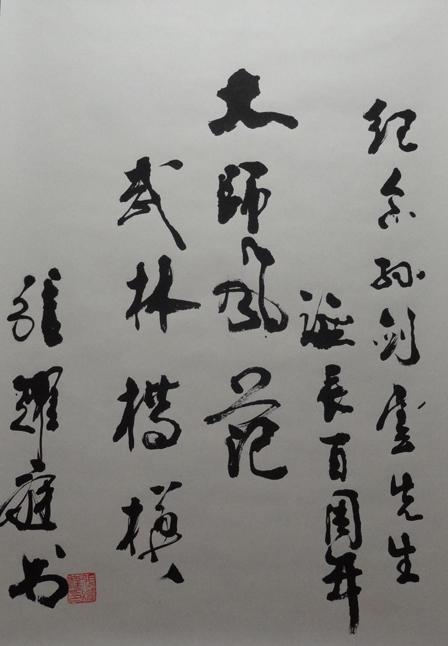 纪念孙剑雲先生
诞辰百周年
大師风范
武林楷模
張耀庭书